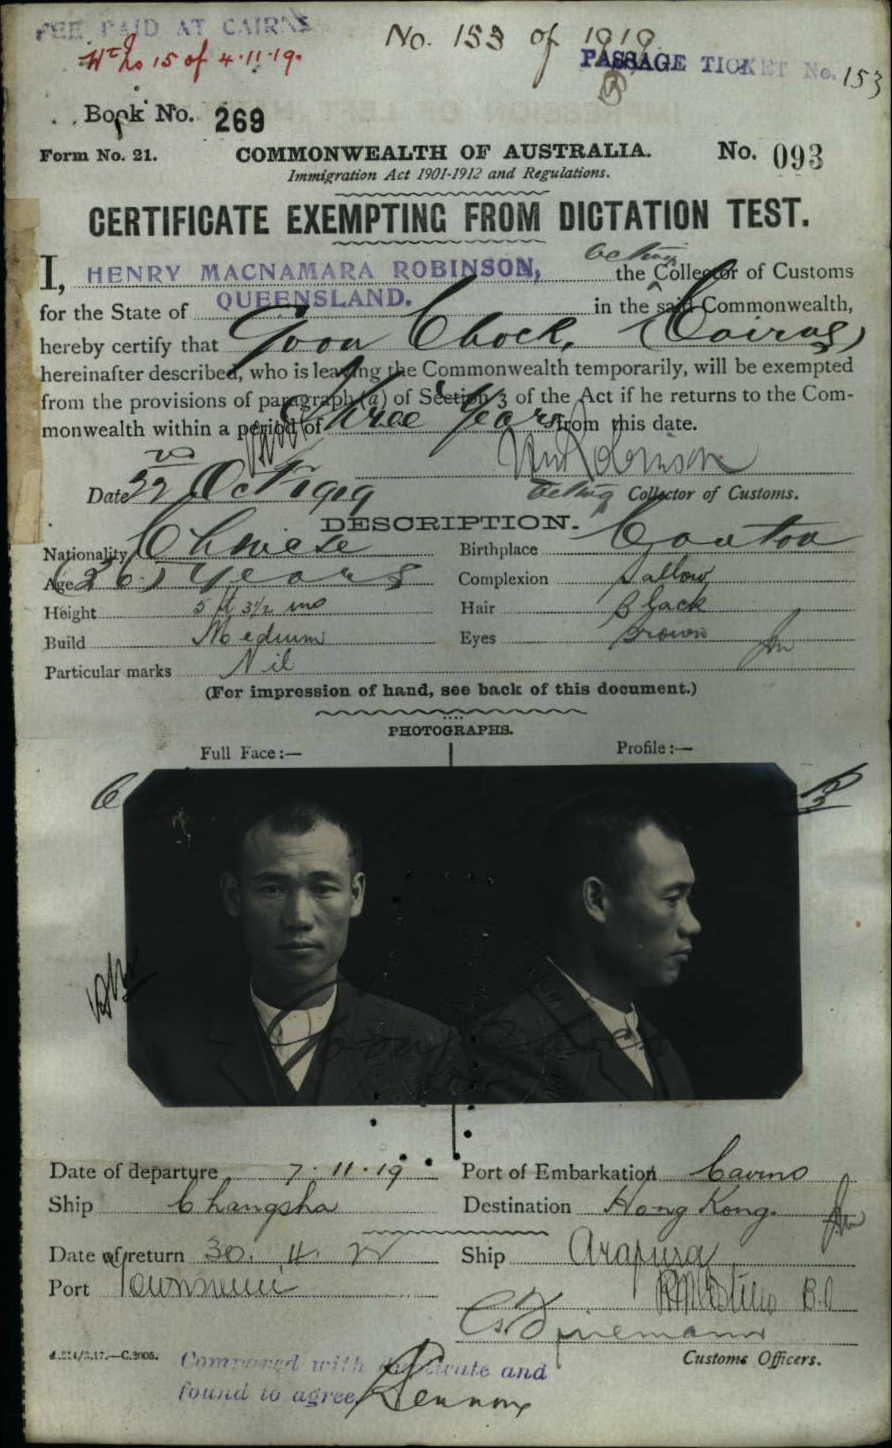 FEE PAID AT CAIRNS
No. 153 of 1919
No 15 of 4.11.19.
PASSAGE TICKET No. 153
Book No. 269
Form No. 21.
COMMONWEALTH OF AUSTRALIA.
No. 093
Immigration Act 1901-1912 and Regulations.
CERTIFICATE EXEMPTING FROM DICTATION TEST.
I, HENRY MACNAMARA ROBINSON, acting the Collector of Customs
for the State of QUEENSLAND. in the said Commonwealth,
hereby certify that Goon Chock, (Cairns)
hereinafter described, who is leaving the Commonwealth temporarily, will be exempted
from the provisions of paragraph (a) of Section 3 of the Act if he returns to the Com-
monwealth within a period of Three Years from this date.
HMRobinson
Date 22 Oct 1919
Acting Collector of Customs.
DESCRIPTION.
Nationality Chinese Birthplace Canton
Age (26) years Complexion Sallow
Height 5 ft 3½ ins Hair Black
Build Medium Eyes Brown
Particular marks Nil
(For impression of hand, see back of this document.)
PHOTOGRAPHS.
Full Face:— Profile:—
Goon Chock
Date of departure 7.11.19 Port of Embarkation Cairns
Ship Changsha Destination Hong Kong.
Date of return 30. 4. Ship Arafura
Port Townsville
B.O
Customs Officers.
Compared with duplicate and
found to agree. Lennox